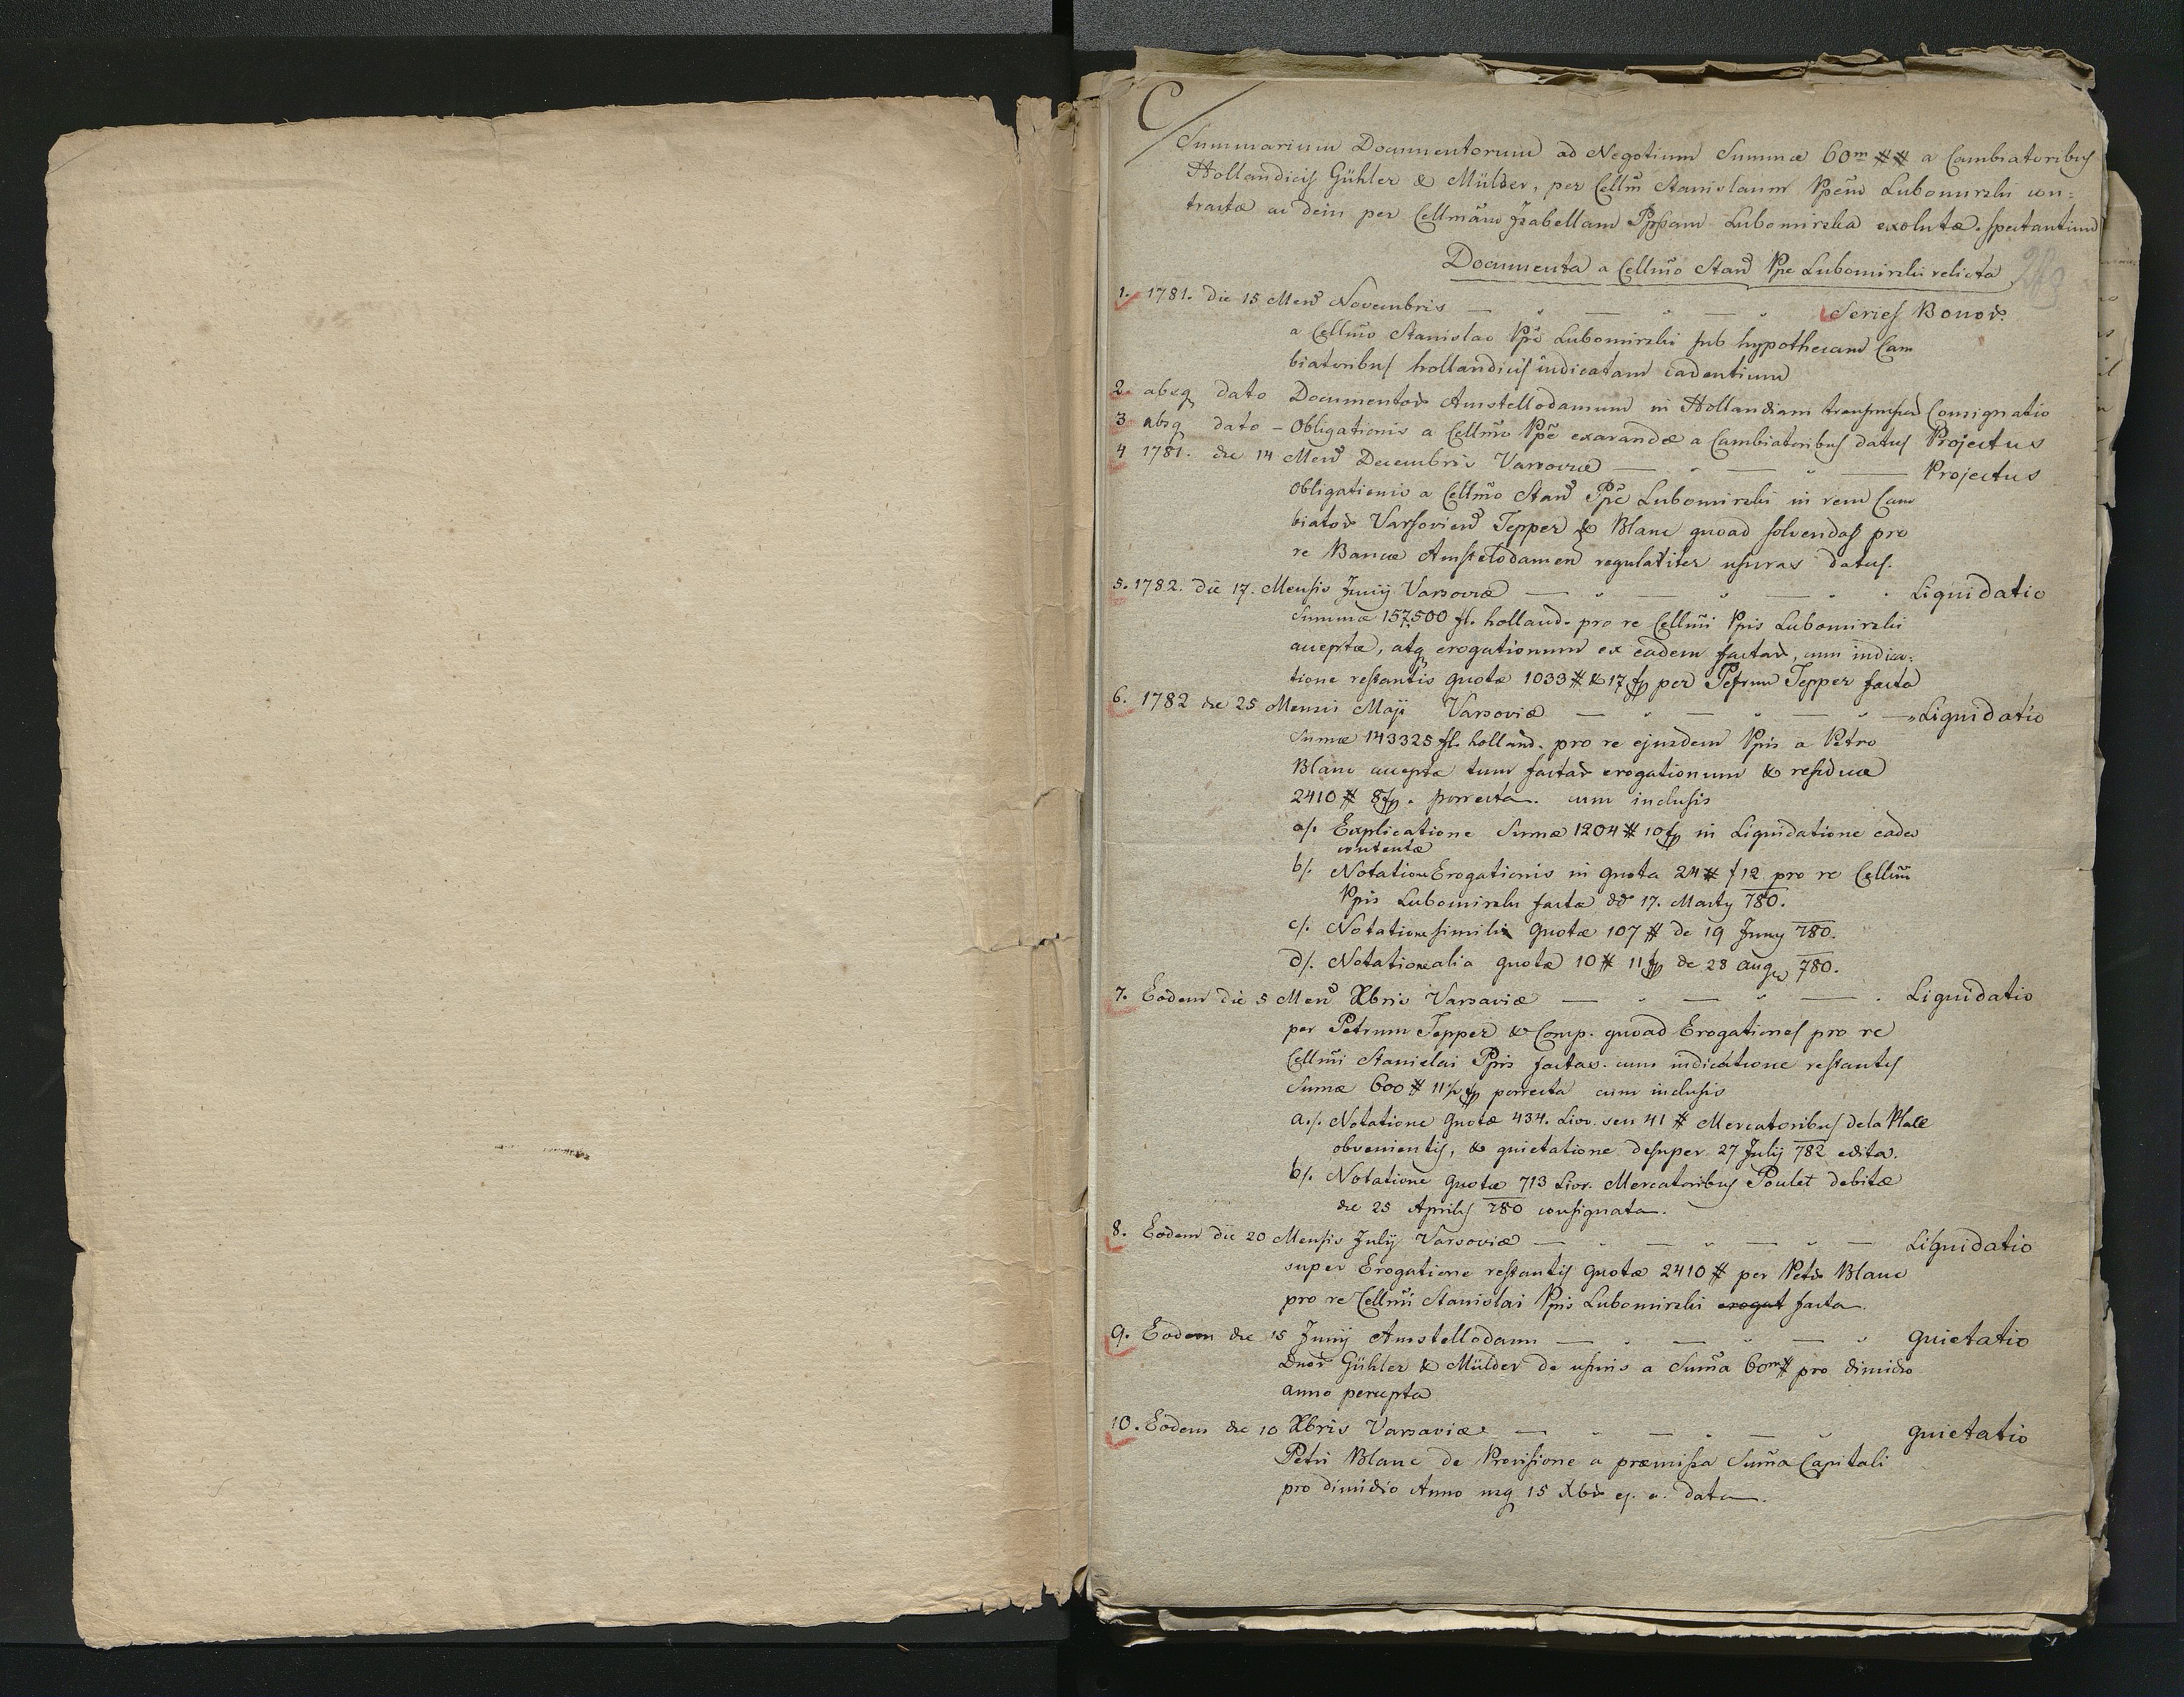 C
Summarium Documentorum ad Negotium Summæ 60m ## a Cambiatoribus
Hollandicis Gühler & Mülder, per Cellm Stanislaum Ppem Lubomirski con=
tractæ ac dein per Cellmam Isabellam Ppssam Lubomirska exolutæ. spectantium
Documenta a Cellmo Stan Ppe Lubomirski relicta
1. 1781. die 15 Mens Novembris — " — " — " Series Bonor.
a Cellmo Stanislao Ppe Lubomirski sub hypothecam Cam
biatoribus hollandicis indicatam cadentium
2. absq dato Documentor Amstellodamum in Hollandiam transmissor Consignatio
3 absq dato – Obligationis a Cellmo Ppe exarandæ a Cambiatoribus datus Projectus
4 1781. die 14 Mens Decembris Varsoviæ — " — " — Projectus
Obligationis a Cellmo Stan Ppe Lubomirski in rem Cam
biator Varsovien Tepper & Blanc quoad solvendas pro
re Bancæ Amstelodamen regulariter usuras datus.
5. 1782. die 17. Mensis Junij Varsoviæ — " — " — " . Liquidatio
Summæ 157,500 fl. holland. pro re Cellmi Ppis Lubomirski
acceptæ, atq erogationum ex eadem factar, cum indica=
tione restantis quotæ 1033 # & 17 fp per Petrum Tepper facta
6. 1782 die 25 Mensis Maji Varsoviæ — " — " — " — Liquidatio
Sumæ 143325 fl. holland. pro re ejusdem Ppis a Petro
Blanc acceptæ tum factar erogationum & residuæ
2410 # 8 fp. porrecta. cum inclusis
a/. Explicatione Sumæ 1204 # 10 fp in Liquidatione eadem
contentæ
b/. Notatione Erogationis in quota 24 # f 12 pro re Cellmi
Ppis Lubomirski factæ dd 17. Martij 780.
c/. Notatione simili quotæ 107 # de 19 Juny 780.
d/. Notatione alia quotæ 10 # 11 fp de 28 aug 780.
7. Eodem die 5 Mens Xbris Varsaviæ — " — " — . Liquidatio
per Petrum Tepper & Comp. quoad Erogationes pro re
Cellmi Stanislai Ppis factas. cum indicatione restantis
Sumæ 600 # 11½ fp porrecta cum inclusis
a./. Notatione quotæ 434. Livr. seu 41 # Mercatoribus de la Place
obvenientis, & quietatione desuper 27 Julij 782 edita.
b/. Notatione quotæ 713 Livr. Mercatoribus Poulet debitæ
die 25 Aprilis 780 consignata.
8. Eodem die 20 Mensis Julij Varsoviæ — " — " — " — Liquidatio
super Erogatione restantis quotæ 2410 # per Petr Blanc
pro re Cellmi Stanislai Ppis Lubomirski erogat facta.
9. Eodem die 15 Junij Amstellodam — " — " — " quietatio
Dnor Gühler & Mülder de usuris a Suma 60m # pro dimidio
anno percepta
10. Eodem die 10 Xbris Varsaviæ — " — " — " quietatio
Petri Blanc de Provisione a præmissa Suma Capitali
pro dimidio Anno usq 15 Xbr ej. a. data.